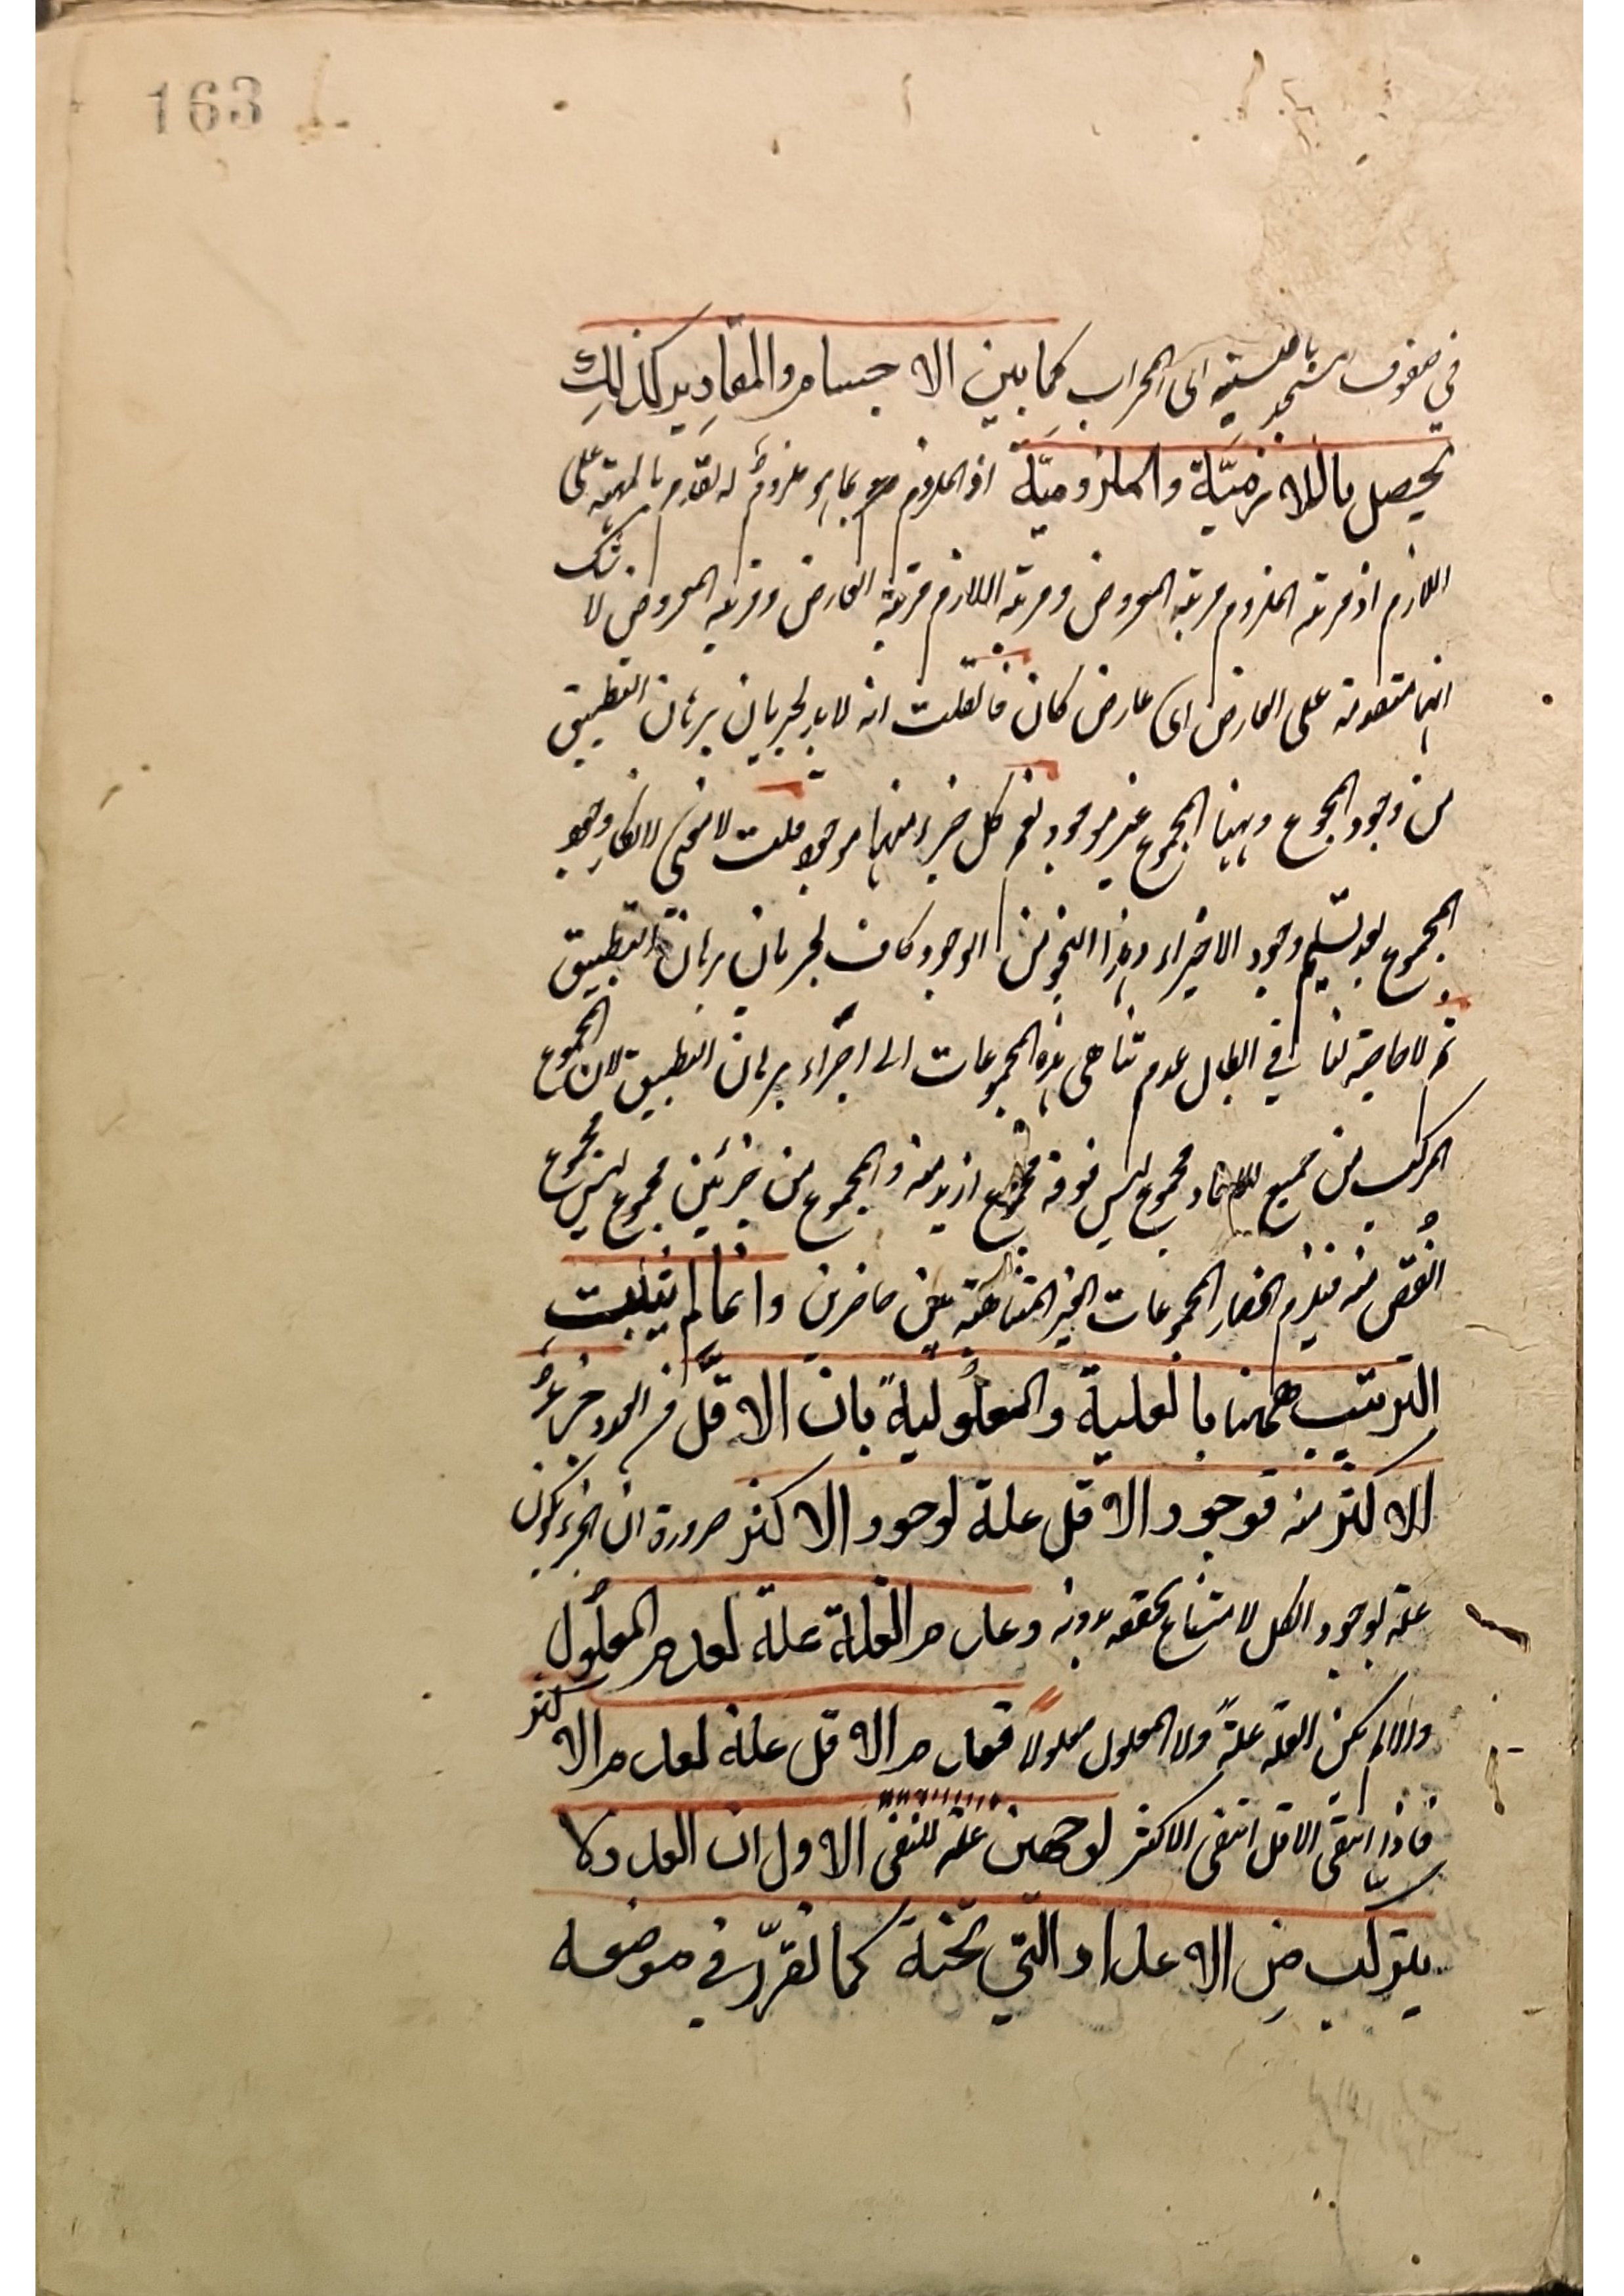 163
في صفوف المسجد بالنسبة الى المحراب كما بين الاجسام والمقادير كذلك
يحصل باللازميّة والملزوميّة اذ الملزوم بما هو ملزومٌ له تقدم بالمهية على
اللازم اذ مرتبة الملزوم مرتبة المعروض ومرتبة اللازم مرتبة العارض ومرتبة المعروض لا شك
انها متقدمة على العارض اى عارض كان فان قلت انه لا بد لجريان برهان التطبيق
من وجود المجموع وههنا المجموع غير موجود نعم كل جزء منها موجود قلت لا معنى لانكار وجود
المجموع بعد تسليم وجود الاجزاء وهذا النحو من الوجود كاف لجريان برهان التطبيق
ثم لا حاجة لنا في ابطال عدم تناهى هذه المجموعات الى اجراء برهان التطبيق لان المجموع
المركب من جميع الاحاد مجموع ليس فوقه مجموع ازيد منه والمجموع من جزئين مجموع ليس مجموع
انقص منه فيلزم انحصار المجموعات الغير المتناهية بين حاصرين وانما لم يثبت
الترتيب ههنا بالعلية والمعلولية بان الاقلّ من العدد جزءٌ
الاكثر منه فوجود الاقل علة لوجود الاكثر ضرورة ان الجزء يكون
علة لوجود الكل لامتناع تحققه بدونه وعدم العلة علة لعدم المعلول
والا لم يكن العلة علةً ولا المعلول معلولاً فعدم الاقل علة لعدم الاكثر
فاذا انتفى الاقل انتفى الاكثر لوجهين علة للنفى الاول ان العدد لا
يتركب من الاعداد التي تحته كما تقرّر في موضعه